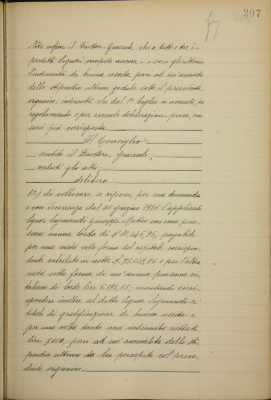 297
Nota infine il Direttore Generale, che a tutti e tre i
predetti Signori compete ancora - e cioè gli ultimi
l'indennità di buona uscita pari ad un'annata
dello stipendio ultimo goduto sotto il precedente
organico, indennità che dal 1° luglio in avanti, pel
regolamento e per recente deliberazione presa, non
sarà più corrisposta.
Il Consiglio
sentito il Direttore Generale,
veduti gli atti
delibera
1°/ di collocare a riposo, per sua domanda
e con decorrenza dal 30 giugno 1926 l'applicato
Signor Sagramoso Giuseppe Matteo con una pen
sione annua lorda di £ 10.246,05, pagabile
per una metà sotto forma del capitale corrispon
dente calcolato in nette £ 71.038,96 e per l'altra
metà sotto forma di un'annua pensione vi
talizia di lorde lire 5.123,03; mandando corri
spondere inoltre al detto Signor Sagramoso a
titolo di gratificazione di buona uscita e
per una volta tanto una indennità netta di
lire 7000, pari ad un'annualità dello sti
pendio ultimo da lui percepito col prece
dente organico.